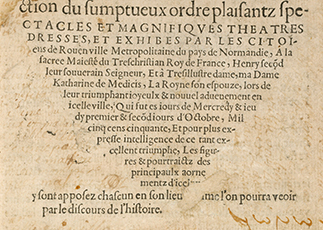 ction du sumptueux ordre plaisantz spe-
CTACLES ET MAGNIFIQVES THEATRES
DRESSES, ET EXHIBES PAR LES CITOI-
ens de Rouen ville Metropolitaine du pays de Normandie, A la
sacree Maiesté du Treschristian Roy de France, Henry secõd
leur souuerain Seigneur, Et à Tresillustre dame, ma Dame
Katharine de Medicis, La Royne son espouze, lors de
leur triumphant ioyeulx & nouuel aduenement en
icelle ville, Qui fut es iours de Mercredy & ieu
dy premier & secõd iours d'Octobre, Mil
cinq cens cinquante, Et pour plus ex-
presse intelligence de ce tant ex-
cellent triumphe, Les figu-
res & pourtraictz des
principaulx aorne-
mentz d'icel
y sont apposez chascun en son lieu me l'on pourra veoir
par le discours de l'histoire.